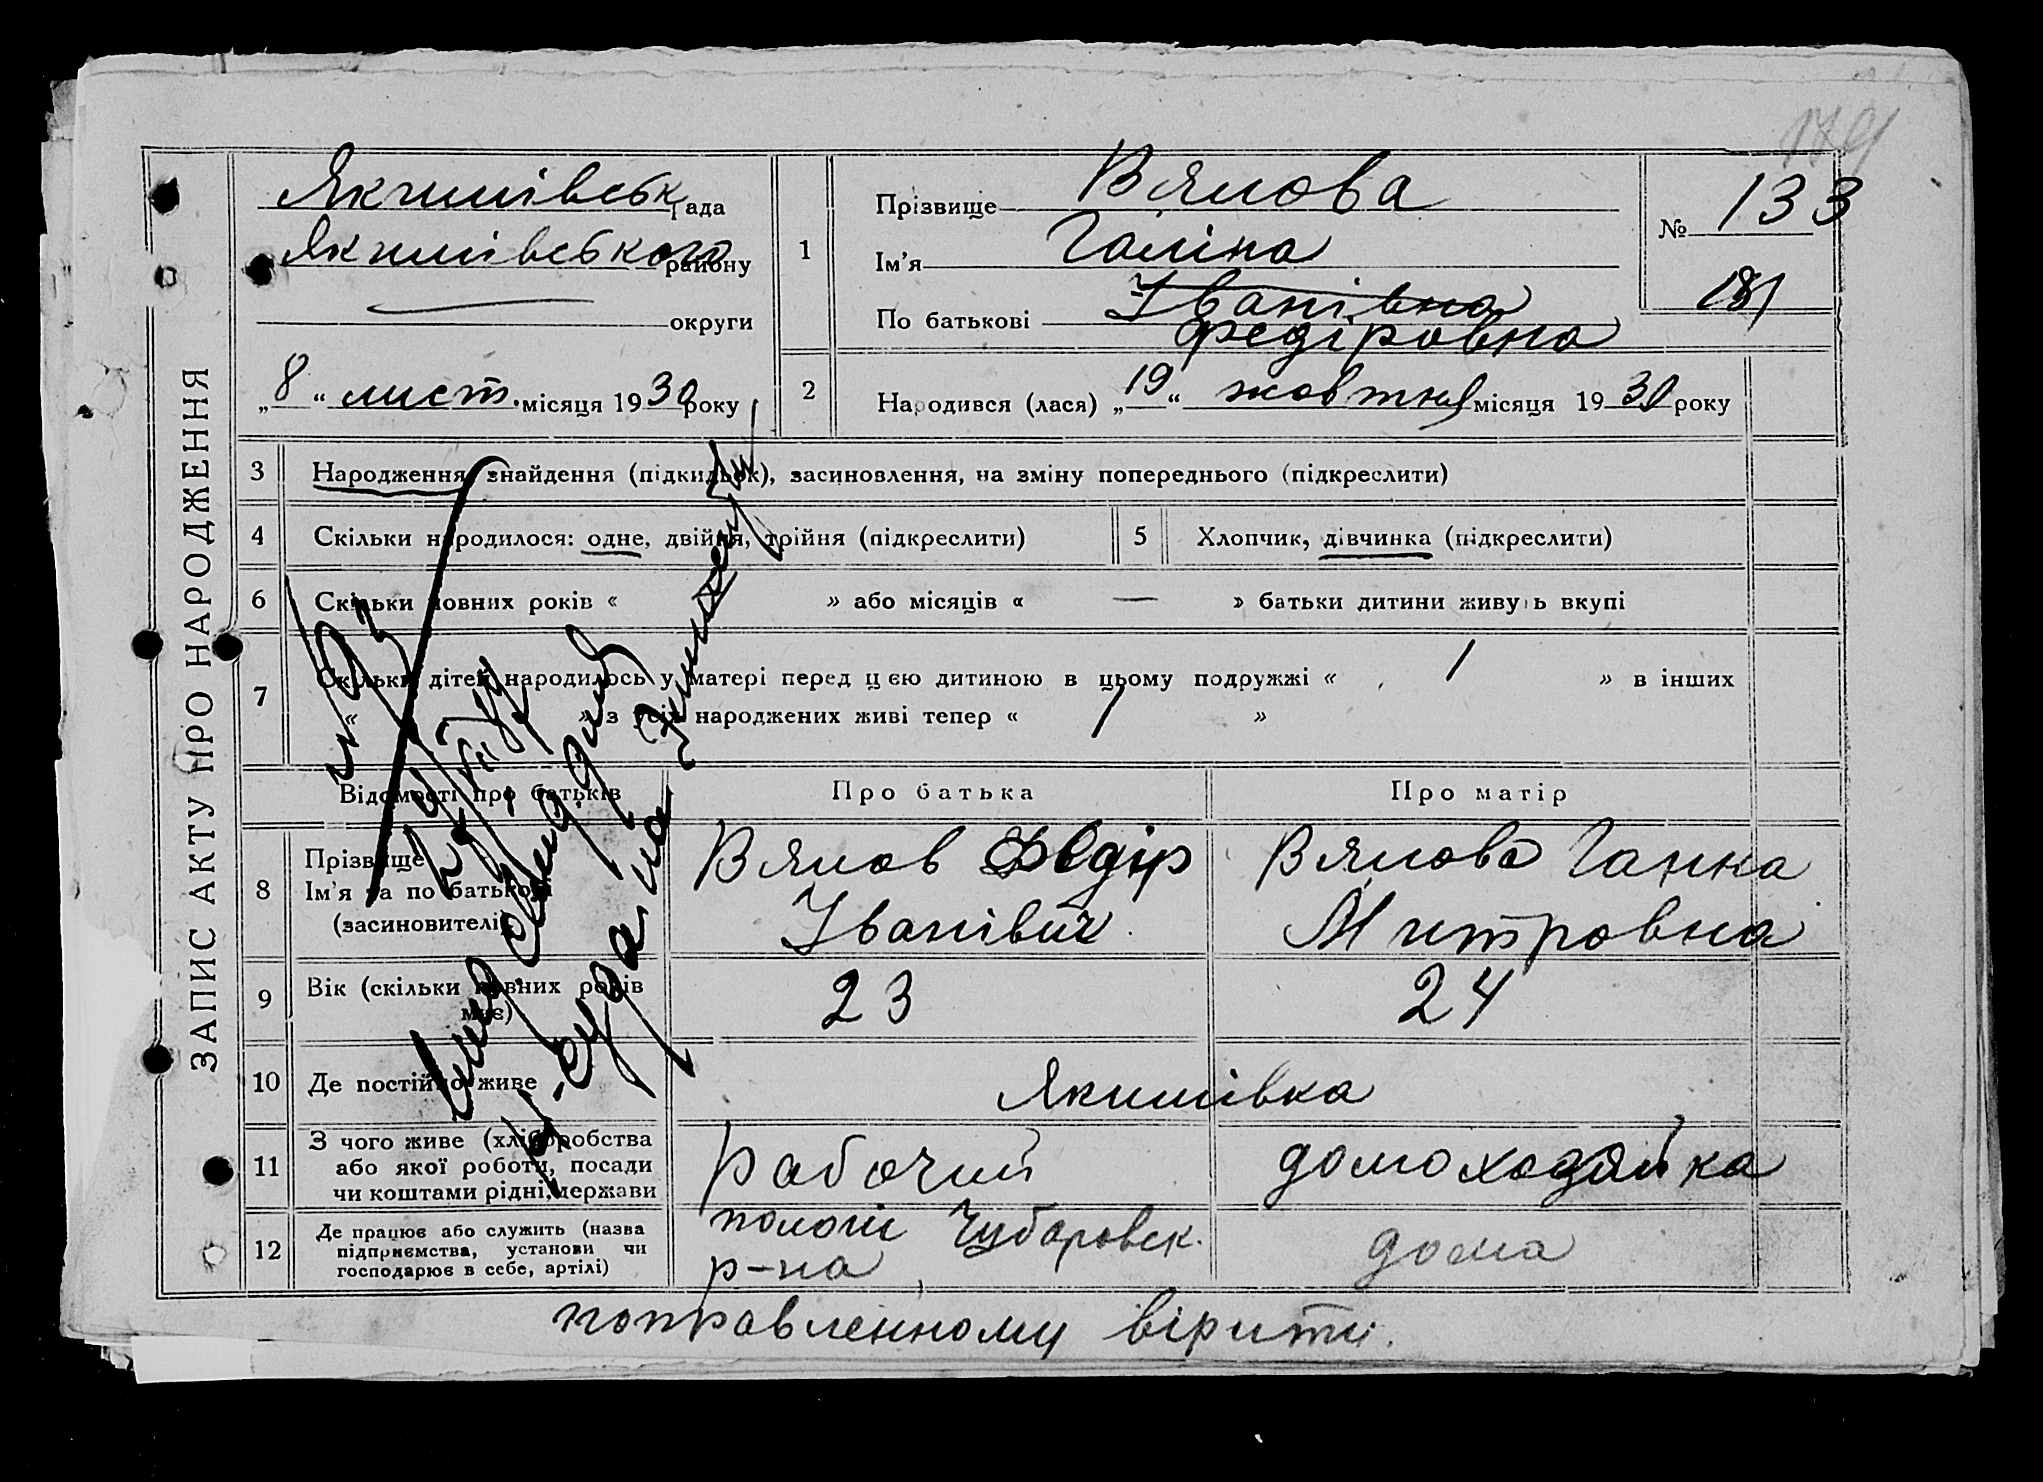 ЗАПИС АКТУ ПРО НАРОДЖЕННЯ
Якимівськ рада
Якимівського району
округи
„8“ лист. місяця 1930 року
1
Прізвище Вялова
Ім'я Галіна
По батькові Іванівна
Федіровна
№ 133
181
2
Народився (лася) „19“ жовтня місяця 1930 року
3 Народження, знайдення (підкидьок), засиновлення, на зміну попереднього (підкреслити)
4 Скільки народилося: одне, двійня, трійня (підкреслити) 5 Хлопчик, дівчинка (підкреслити)
6 Скільки повних років « » або місяців « — » батьки дитини живуть вкупі
7 Скільки дітей народилось у матері перед цією дитиною в цьому подружжі « 1 » в інших
« » з усіх народжених живі тепер « 1 »
Відомості про батьків Про батька Про матір
8 Прізвище
Ім'я та по батькові
(засиновителі)
Вялов Федір
Іванівич
Вялова Ганна
Митровна
9 Вік (скільки повних років
має)
23 24
10 Де постійно живе Якимівка
11 З чого живе (хліборобства
або якої роботи, посади
чи коштами рідні, держави
Рабочий домохозяйка
12 Де працює або служить (назва
підприємства, установи чи
господарює в себе, артілі)
Чубаровск.
р-на
дома
поправленному вірити.